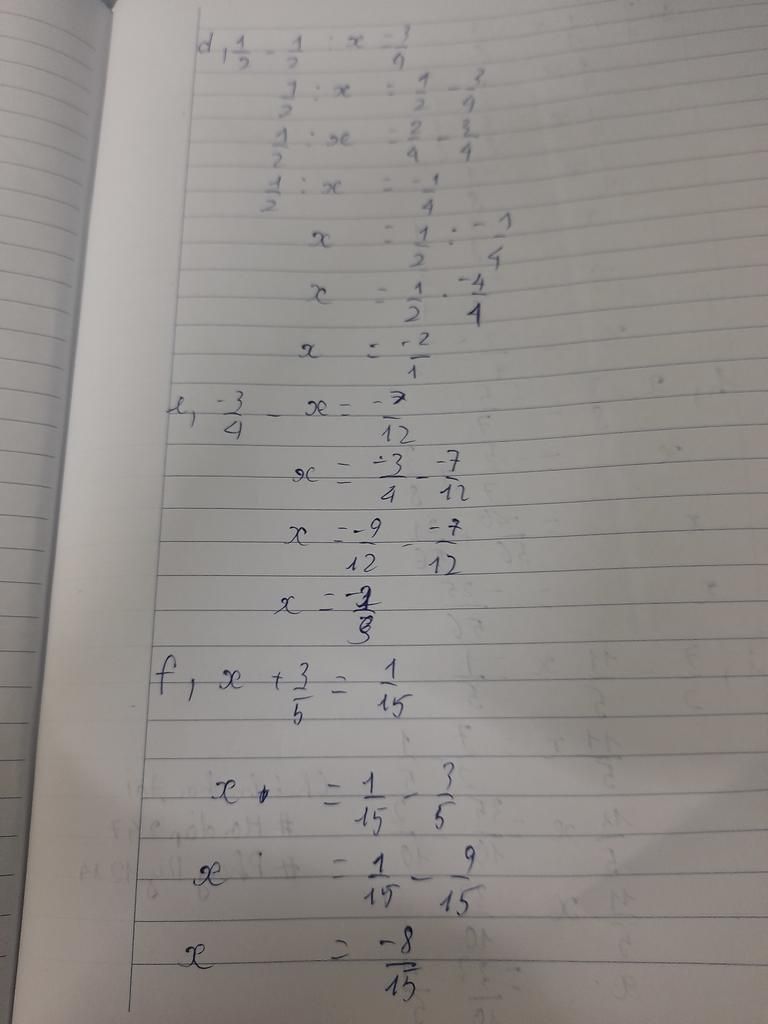 d, 1/2 - 1/2 : x = 3/4
1/2 : x = 1/2 - 3/4
1/2 : x = 2/4 - 3/4
1/2 : x = -1/4
x = 1/2 : -1/4
x = 1/2 . -4/4
x = -2/1
e, -3/4 - x = -7/12
x = -3/4 - -7/12
x = -9/12 - -7/12
f, x + 3/5 = 1/15
x = 1/15 - 3/5
x = 1/15 - 9/15
x = -8/15